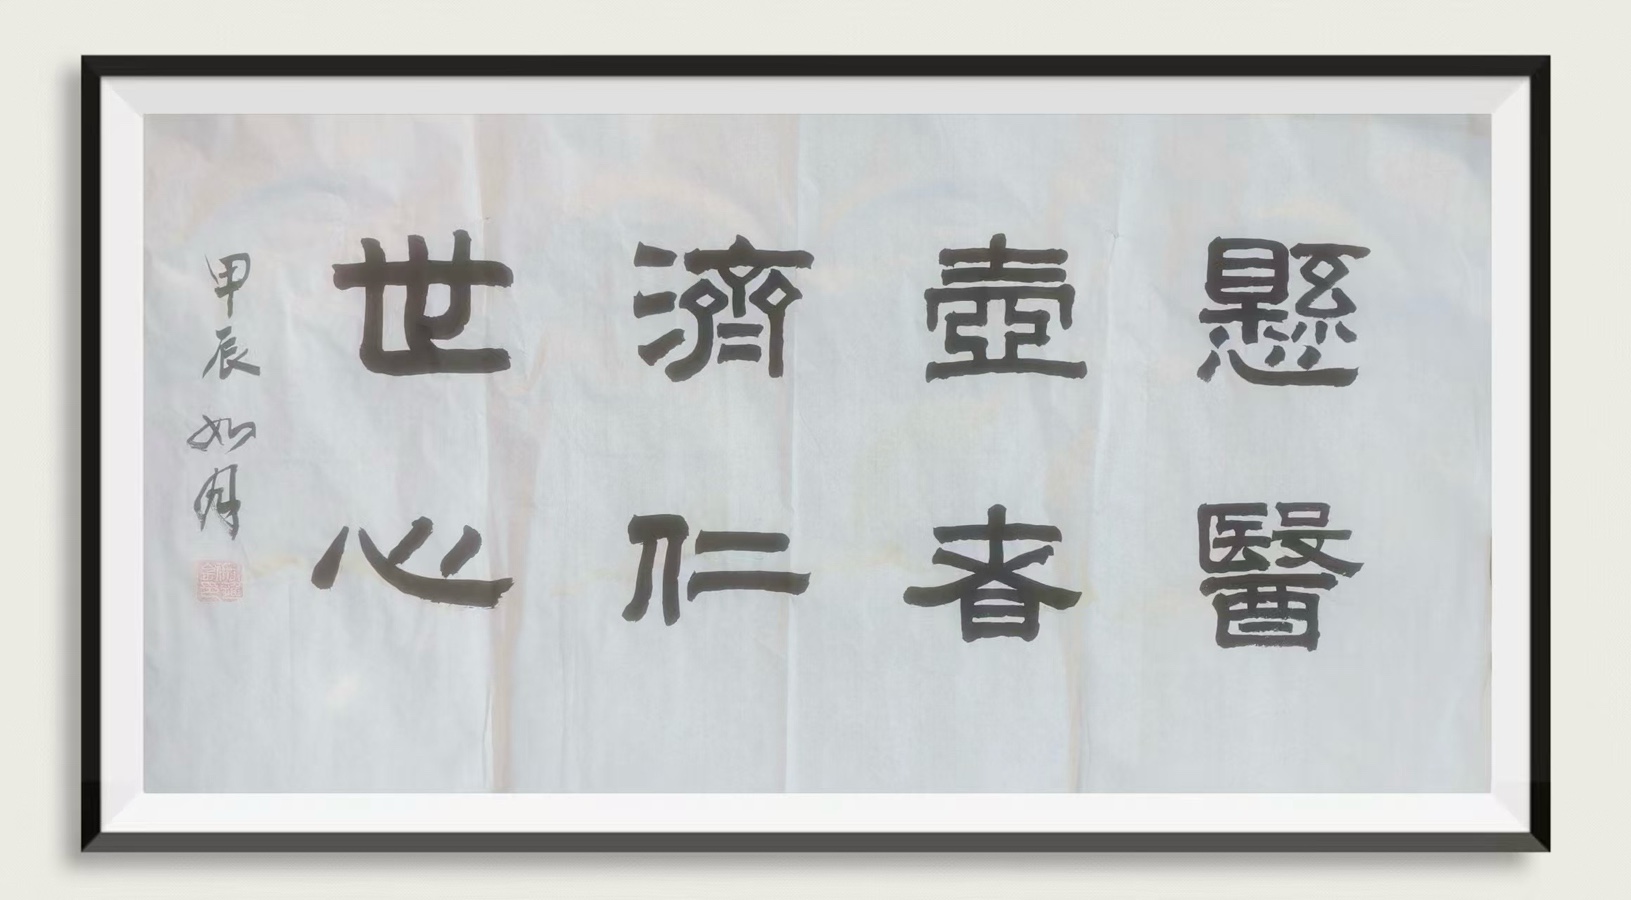 懸壺濟世
醫者仁心
甲辰 如月